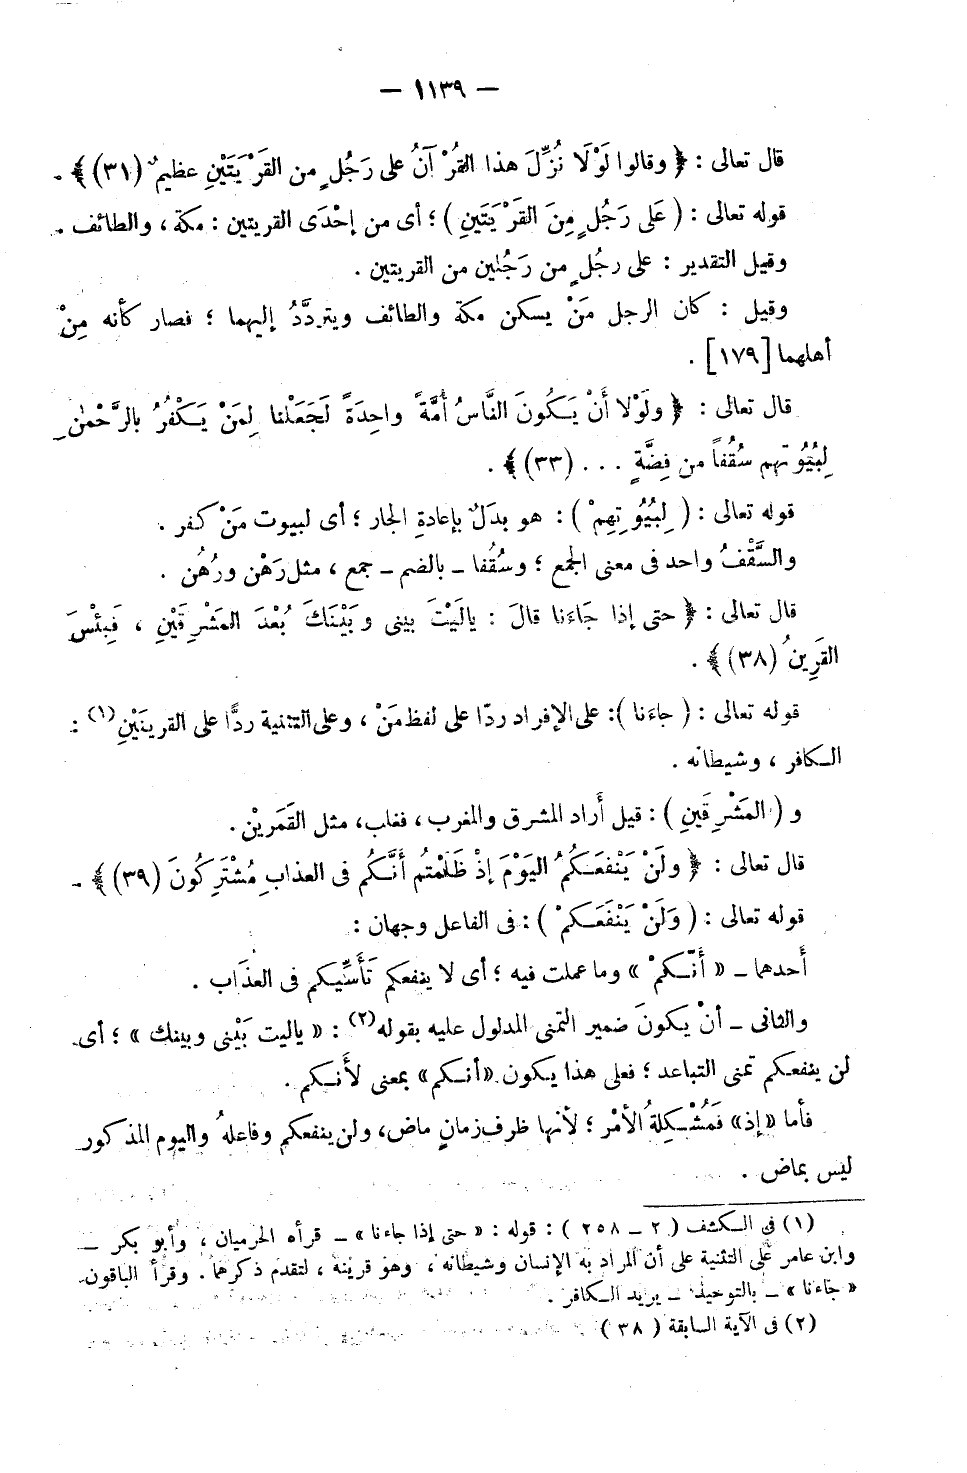 — ١١٣٩ —
قال تعالى : ﴿ وقالوا لَوْلَا نُزِّلَ هذا القُرْآنُ على رَجُلٍ من القَرْيَتَيْنِ عظيمٌ (٣١) ﴾ .
قوله تعالى : ( عَلى رَجُلٍ مِنَ القَرْيَتَينِ ) ؛ أى من إحْدَى القريتين : مكة ، والطائف .
وقيل التقدير : على رجُلٍ من رَجُلين من القريتين .
وقيل : كان الرجل مَنْ يسكن مكة والطائف ويتردَّدُ إليهما ؛ فصار كأنه مِنْ
أهلهما [١٧٩] .
قال تعالى : ﴿ ولَوْلا أَنْ يَكُونَ النَّاسُ أُمَّةً واحِدَةً لَجَعَلْنا لِمَنْ يَكْفُرُ بالرَّحْمٰنِ
لِبُيُوتهم سُقُفاً من فِضَّةٍ ... (٣٣) ﴾ .
قوله تعالى : ( لِبُيُوتِهِمْ ) : هو بدَلٌ بإعادةِ الجار ؛ أى لبيوت مَنْ كفر .
والسَّقْفُ واحد فى معنى الجمع ؛ وسُقُفا ـ بالضم ـ جمع ، مثل رَهْن ورُهُن .
قال تعالى : ﴿ حتى إذا جَاءَنا قالَ : يالَيْتَ بينى وبَيْنَكَ بُعْدَ المَشْرِقَيْنِ ، فَبِئْسَ
القَرِينُ (٣٨) ﴾ .
قوله تعالى : ( جاءَنا ) : على الإفراد ردّا على لفظ مَنْ ، وعلى التثنية ردًّا على القرينَيْنِ (١) :
الكافر ، وشيطانه .
و ( المَشْرِقَينِ ) : قيل أراد المشرق والمغرب ، فغلب، مثل القَمَرينْ .
قال تعالى : ﴿ ولَنْ يَنْفَعَكُمُ اليَوْمَ إذْ ظَلَمْتُم أَنَّكُم فى العذابِ مُشْتَرِكُونَ (٣٩) ﴾ .
قوله تعالى : ( وَلَنْ يَنْفَعَكمْ ) : فى الفاعل وجهان :
أحدهما ـ « أنّكمْ » وما عملت فيه ؛ أى لا ينفعكم تَأَسِّيكم فى العذَاب .
والثانى ـ أنْ يكونَ ضمير التمنى المدلول عليه بقوله (٢) : « ياليت بَيْنى وبينك » ؛ أى
لن ينفعكم تمنى التباعد ؛ فعلى هذا يكون «أنكم» بمعنى لأَنكم .
فأما «إذ» فَمُشْكِلةُ الأمْر ؛ لأنها ظرف زمانٍ ماض، ولن ينفعكم وفاعلهُ واليوم المذكور
ليس بماض .
(١) فى الكشف ( ٢ ـ ٢٥٨ ) : قوله : « حتى إذا جاءنا » ـ قرأه الحرميان ، وأبو بكر ـ
وابن عامر على التثنية على أن المراد به الإنسان وشيطانه ، وهو قرينه ، لتقدم ذكرهما . وقرأ الباقون
« جاءنا » ـ بالتوحيد ـ يريد الكافر .
(٢) فى الآية السابقة ( ٣٨ )